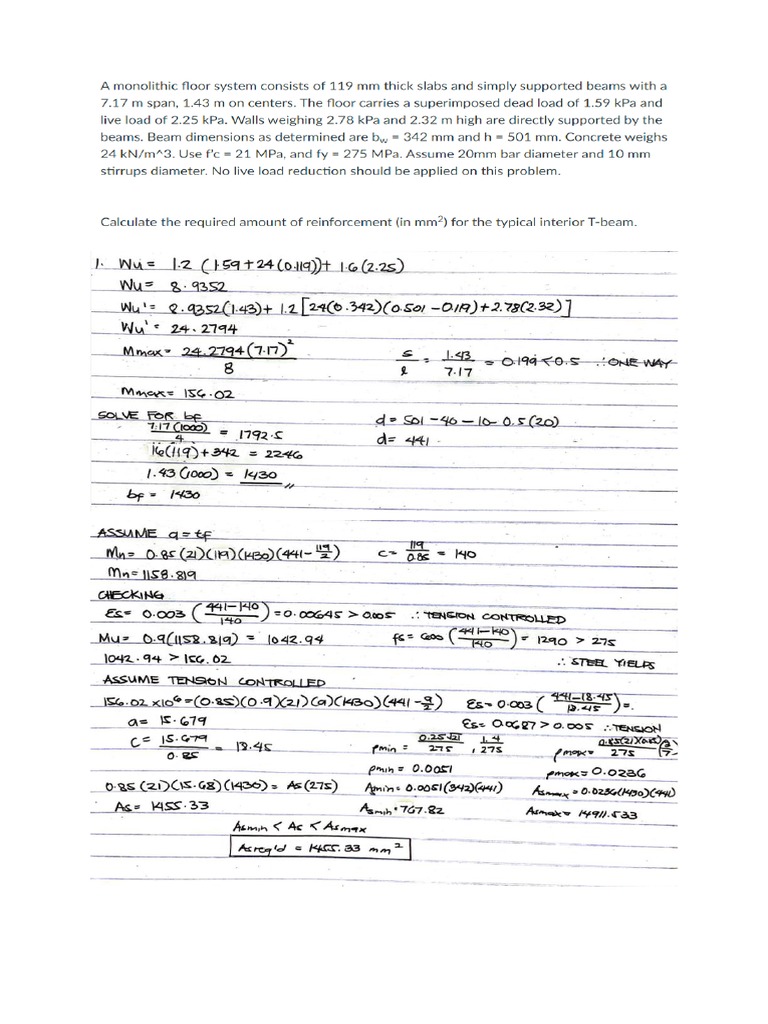 A monolithic floor system consists of 119 mm thick slabs and simply supported beams with a
7.17 m span, 1.43 m on centers. The floor carries a superimposed dead load of 1.59 kPa and
live load of 2.25 kPa. Walls weighing 2.78 kPa and 2.32 m high are directly supported by the
beams. Beam dimensions as determined are bw = 342 mm and h = 501 mm. Concrete weighs
24 kN/m^3. Use f'c = 21 MPa, and fy = 275 MPa. Assume 20mm bar diameter and 10 mm
stirrups diameter. No live load reduction should be applied on this problem.
Calculate the required amount of reinforcement (in mm²) for the typical interior T-beam.
1. Wu = 1.2 (1.59+24(0.119))+ 1.6(2.25)
Wu = 8.9352
Wu' = 8.9352(1.43)+ 1.2[24(0.342)(0.501-0.119)+2.78(2.32)]
Wu' = 24.2794
Mmax = 24.2794(7.17)²/8
s/l = 1.43/7.17 = 0.199 < 0.5 ∴ ONE WAY
Mmax = 156.02
SOLVE FOR bf
7.17(1000)/4 = 1792.5
d = 501-40-10-0.5(20)
d = 441
16(119)+342 = 2246
1.43(1000) = 1430
bf = 1430
ASSUME a = tf
Mn = 0.85(21)(119)(1430)(441-119/2)
c = 119/0.85 = 140
Mn = 1158.819
CHECKING
Es = 0.003 (441-140/140) = 0.00645 > 0.005 ∴ TENSION CONTROLLED
Mu = 0.9(1158.819) = 1042.94
fs = 600 (441-140/140) = 1290 > 275
1042.94 > 156.02
∴ STEEL YIELDS
ASSUME TENSION CONTROLLED
156.02 x10⁶ = (0.85)(0.9)(21)(a)(1430)(441-a/2)
Es = 0.003 (441-18.45/18.45) =
a = 15.679
Es = 0.0687 > 0.005 ∴ TENSION
c = 15.679/0.85 = 18.45
ρmin = 0.25√21/275 , 1.4/275
ρmax = 0.85(21)(0.85)/275 (3/7
ρmin = 0.0051
ρmax = 0.0236
0.85 (21)(15.68)(1430) = As(275)
Asmin = 0.0051(342)(441)
Asmax = 0.0236(1430)(441)
As = 1455.33
Asmin = 767.82
Asmax = 14911.533
Asmin < As < Asmax
Asreq'd = 1455.33 mm²